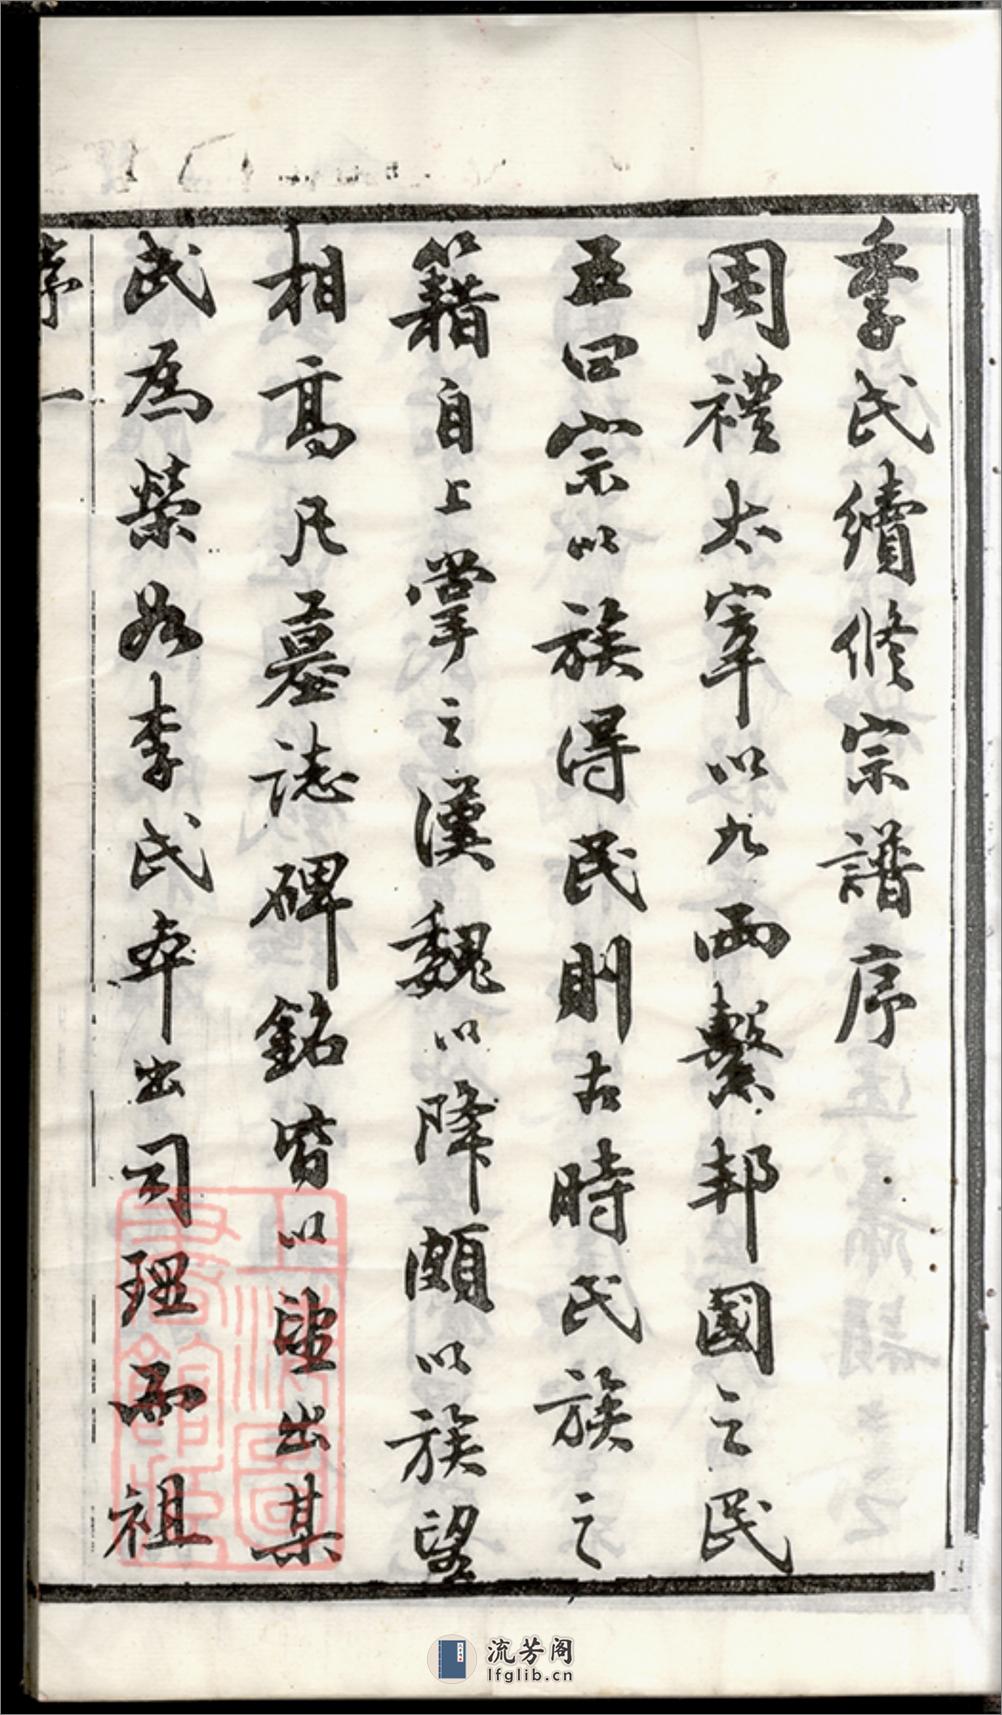 季氏續修宗譜序
周禮太宰以九兩繫邦國之民
五曰宗以族得民則古時氏族之
籍自上掌之漢魏以降頗以族望
相高凡墓誌碑銘皆以望出某
氏為榮如李氏本出司理而祖
序 一
上海圖書館藏
流芳阁
lfglib.cn